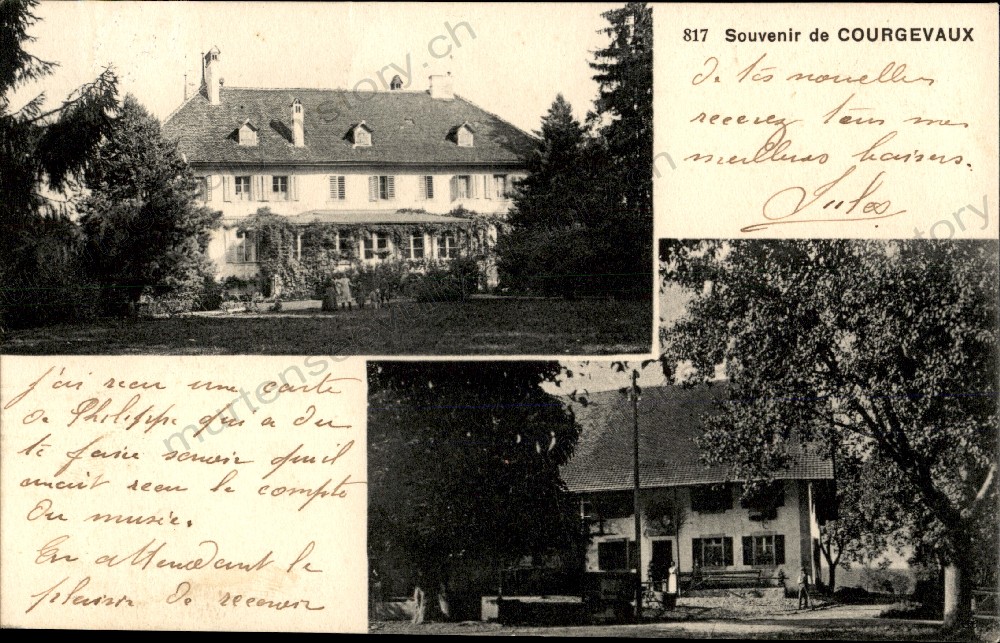 817 Souvenir de COURGEVAUX
J'ai recu une carte
de Philippe qui a du
te faire savoir qu'il
avait recu le compte
du musée.
En attendant le
plaisir de recevoir
de tes nouvelles
recevez tous mes
meilleurs baisers.
Jules